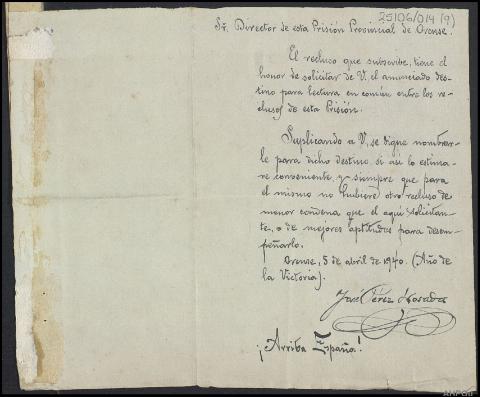 25106/014 (9)
Sr. Director de esta Prisión Provincial de Orense.
El recluso que subscribe, tiene el
honor de solicitar de V. el anunciado des-
tino para lectura en común entre los re-
clusos de esta Prisión.
Suplicando a V, se digne nombrar-
le para dicho destino, si así lo estima-
re conveniente, y siempre que para
el mismo no hubiere otro recluso de
menor condena que el aquí solicitan-
te, o de mejores aptitudes para desem-
peñarlo.
Orense, 5 de abril de 1940. (Año de
la Victoria).
José Pérez Losada
¡Arriba España!